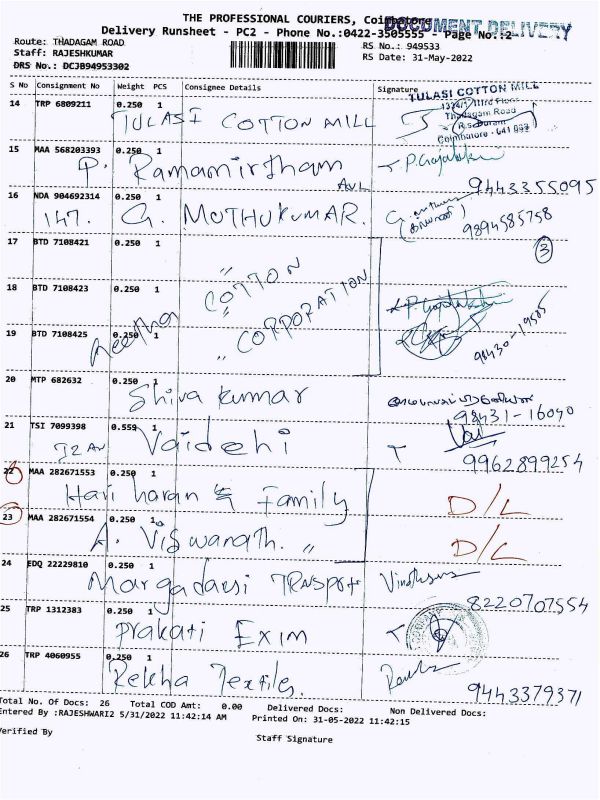 THE PROFESSIONAL COURIERS, Coimbatore
DOCUMENT DELIVERY
Delivery Runsheet - PC2 - Phone No.:0422-3505555 - Page No.:2
Route: THADAGAM ROAD
RS No.: 949533
Staff: RAJESHKUMAR
RS Date: 31-May-2022
DRS No.: DCJB94953302
S No Consignment No Weight PCS Consignee Details Signature
TULASI COTTON MILL
IIIrd Floor
Thadagam Road
R.S.Puram
Coimbatore - 641 002
14 TRP 6809211 0.250 1
TULASI COTTON MILL
15 MAA 568203393 0.250 1
P. Ramamirtham
9443355095
16 NDA 904692314 0.250 1
147. G. MUTHUKUMAR.
9894585758
17 BTD 7108421 0.250 1
3
COTTON
18 BTD 7108423 0.250 1
CORPORATION
19 BTD 7108425 0.250 1
98430-19505
20 MTP 682632 0.250 1
Shiva kumar
98431-16040
21 TSI 7099398 0.559 1
Vaidehi
Vai
9962899254
22 MAA 282671553 0.250 1
Hari haran & Family
D/L
23 MAA 282671554 0.250 1
A. Viswanath. "
D/L
24 EDQ 22229810 0.250 1
Margadarsi TRNSPort
8220707554
25 TRP 1312383 0.250 1
Prakati Exim
26 TRP 4060955 0.250 1
Rekha Textiles.
9443379371
Total No. Of Docs: 26 Total COD Amt: 0.00 Delivered Docs: Non Delivered Docs:
Entered By :RAJESHWARI2 5/31/2022 11:42:14 AM Printed On: 31-05-2022 11:42:15
Verified By
Staff Signature